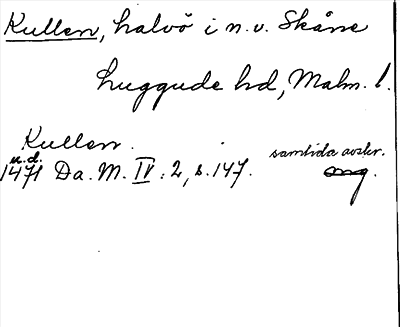 Kullen, halvö i n.v. Skåne
Luggude hd, Malm. l.
Kullen.
u.d. samtida avskr.
1471 Da. M. IV: 2, s. 147. orig.